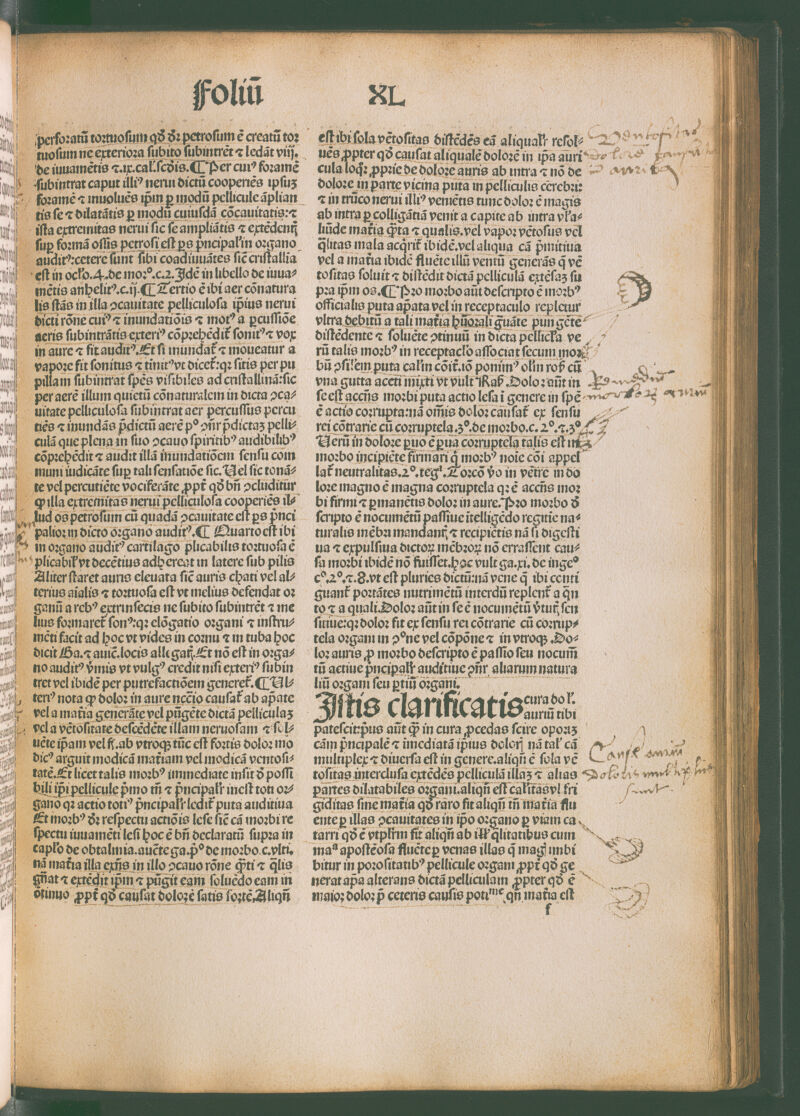 Foliū XL
perforatū tortuosum qd̄ dr̄ petrosum ē creatū tor
tuosum ne exteriora subito subintrēt ⁊ ledāt viij.
de iuuamētis ⁊ .ix. cał. scḋis. ¶ Per cuiꝰ foramē
subintrat caput illiꝰ nerui dictū cooperiēs ipsuꝫ
foramē ⁊ inuoluēs ip̄m ꝑ modū pellicule āplian
tis se ⁊ dilatātis ꝑ modū cuiusdā cōcauitatis: ⁊
ista extremitas nerui sic se ampliātis ⁊ extēdentꝭ
suꝑ formā ossis petrosi est ꝑs p̄ncipal'in organo
auditꝰ: cetere sunt sibi coadiuuātes sic̄ cristallia
est in oct̄o. 4. de morꝰ. c. 2. Idē in libello de iuua-
mētis anhelitꝰ. c. ij. ¶ Tertio ē ibi aer cōnatura
lis stās in illa ↄcauitate pelliculosa ip̄ius nerui
dicti rōne cuiꝰ ⁊ inundatiōis ⁊ motꝰ a ꝑcussiōe
aeris subintrātis exteriꝰ cōprehēdit᷑ sonitꝰ ⁊ vox
in aure ⁊ fit auditꝰ. Et si inundat᷑ ⁊ moueatur a
vapore fit sonitus ⁊ tinitꝰ vt dicet᷑: qꝛ sitis per pu
pillam subintrat sp̄es visibiles ad cristallinā: sic
per aerē illum quietū cōnaturalem in dicta ↄca-
uitate pelliculosa subintrat aer percussus percu
tiēs ⁊ inundās p̄dictū aerē pꝰ ↄñr p̄dictaꝫ pelli-
culā que plena in suo ↄcauo spiritibꝰ audibilibꝰ
cōprehēdit ⁊ audit illā inundatiōem sensu com
muni iudicāte suꝑ tali sensatiōe sic. Uel sic tonā-
te vel percutiēte vociferāte ꝓpt᷑ qd̄ bñ ↄcluditur
ꝙ illa extremitas nerui pelliculosa cooperiēs il-
lud os petrosum cū quadā ↄcauitate est ꝑs p̄nci
palior in dicto organo auditꝰ. ¶ Quarto est ibi
in organo auditꝰ cartilago plicabilis tortuosa ē
plicabił vt decētius adhereat in latere sub pilis
Aliter staret auris eleuata sic̄ auris chati vel al-
terius aīalis ⁊ tortuosa est vt melius defendat or
ganū a rebꝰ extrinsecis ne subito subintrēt ⁊ me
lius formaret᷑ sonꝰ: qꝛ elōgatio organi ⁊ instru-
mēti facit ad hoc vt vides in cornu ⁊ in tuba hoc
dicit Ga. ⁊ auiē. locis allegatꝭ. Et nō est in orga-
no auditꝰ v̄mis vt vulgꝰ credit nisi exteriꝰ subin
tret vel ibidē per putrefactiōem generet᷑. ¶ Ul-
teriꝰ nota ꝙ dolor in aure necc̄io causat᷑ ab apate
vel a mat̄ia generāte vel pūgēte dictā pelliculaꝫ
vel a vētositate descēdēte illam neruosam ⁊ sol-
uēte ip̄am vel ss. ab vtroqꝫ tūc est fortis dolor mo
dicꝰ arguit modicā mat̄iam vel modicā ventosi-
tatē. Et licet talis morbꝰ immediate insit d̄ possi
bili ip̄i pellicule p̄mo tñ ⁊ p̄ncipałr inest toti or-
gano qꝛ actio totiꝰ p̄ncipałr ledit᷑ puta auditiua
Et morbꝰ dr̄ respectu actiōis lese sic̄ cā morbi re
spectu iuuamēti lesi hoc ē bñ declaratū supra in
cap̄lo de obtalmia. auēte ga. pꝰ de morbo. c. vlti.
nā mat̄ia illa exñs in illo ↄcauo rōne q̄ti ⁊ q̄lis
gñat ⁊ extēdit ip̄m ⁊ pūgit eam soluēdo eam in
ↄtinuo ꝓpt᷑ qd̄ causat dolorē satis fortē. Aliqñ
est ibi sola vētositas distēdēs eā aliqualr̄ resol-
uēs ꝓpter qd̄ causat aliqualē dolorē in ip̄a auri
cula loqr̄ ꝓprie de dolore auris ab intra ⁊ nō de
dolore in parte vicina puta in pelliculis cerebri:
⁊ in trūco nerui illiꝰ veniētis tunc dolor ē magis
ab intra ꝑ colligātiā venit a capite ab intra vł a-
liūde mat̄ia q̄ta ⁊ qualis. vel vapor vētosus vel
q̄litas mala acqrit᷑ ibidē. vel aliqua cā p̄mitiua
vel a mat̄ia ibidē fluēte illū ventū generās q̄ vē
tositas soluit ⁊ distēdit dictā pelliculā extēsaꝫ su
pra ip̄m os. ¶ Pro morbo aūt descripto ē morbꝰ
officialis puta apata vel in receptaculo repletur
vltra debitū a tali mat̄ia hūorali grauāte pungēte
distēdente ⁊ soluēte ↄtinuū in dicta pellicła ve
rū talis morbꝰ in receptacło associat secum mor
bū ↄsiłem puta caliin cōit. iō ponimꝰ oliu ros. cū
vna gutta aceti mixti vt vult Ras. Dolor aūt in
se est accñs morbi puta actio lesa ī genere in spē
ē actio corrupta: nā oīs dolor causat᷑ ex sensu
rei cōtrarie cū corruptela. 3ꝰ. de morbo. c. 2ꝰ. ⁊. 3ꝰ
Uerū in dolore ꝑuo ē ꝑua corruptela talis est in
morbo incipiēte firmari q̄ morbꝰ noīe cōi appel
lat᷑ neutralitas. 2ꝰ. teg. Torcō v̄o in vētre in do
lore magno ē magna corruptela qꝛ ē accñs mor
bi firmi ⁊ ꝑmanētis dolor in aure. Pro morbo d̄
scripto ē nocumētū passiue itelligēdo regitie na-
turalis mēbri mandantꝭ ⁊ recipiētis nā si digesti
ua ⁊ expulsiua dictorꝫ mēbrorꝫ nō errassent cau-
sa morbi ibidē nō fuisset. hoc vult ga. xi. de inge
cꝰ. 2ꝰ. ⁊. 8. vt est pluries dictū: nā vene q̄ ibi centi
guant᷑ portātes nutrimētū interdū replent᷑ a qn̄
to ⁊ a quali. Dolor aūt in se ē nocumētū v̄tutꝭ sen
sitiue: qꝛ dolor fit ex sensu rei cōtrarie cū corrup-
tela organi in ↄ°ne vel cōpōne ⁊ in vtroqꝫ. Do-
lor auris ꝓ morbo descripto ē passio seu nocum̄
tū actiue p̄ncipałr auditiue ↄñr aliarum natura
liū organi seu ꝑtiū organi.
Istis clarificatis cura dol'.
auriū tibi
patescit: prius aūt ꝙ in cura ꝓcedas scire oportꝫ
cām p̄ncipalē ⁊ imediatā ip̄ius dolorꝭ nā tał cā
multiplex ⁊ diuersa est in genere. aliqñ ē sola vē
tositas interclusa extēdēs pelliculā illaꝫ ⁊ alias
partes dilatabiles organi. aliqñ est caliitas vł fri
giditas sine mat̄ia qd̄ raro fit aliqñ tñ mat̄ia flu
ente ꝑ illas ↄcauitates in ip̄o organo ꝑ viam ca
tarri qd̄ ē vtplr̄m fit aliqñ ab ill' q̄litatibus cum
maª apostēosa fluēte ꝑ venas illas q̄ magꝭ imbi
bitur in porositatibꝰ pellicule organi ꝓpt᷑ qd̄ ge
nerat apa alterans dictā pelliculam ꝓpter qd̄ ē
maior dolor p̄ ceteris causis poti᷑ᵐᵉ. qñ mat̄ia est
f
Ventositas
dolorē causans
ī aurib9
Remediū
morbor aurium
Causæ aurium
Doloris multiplices
sunt